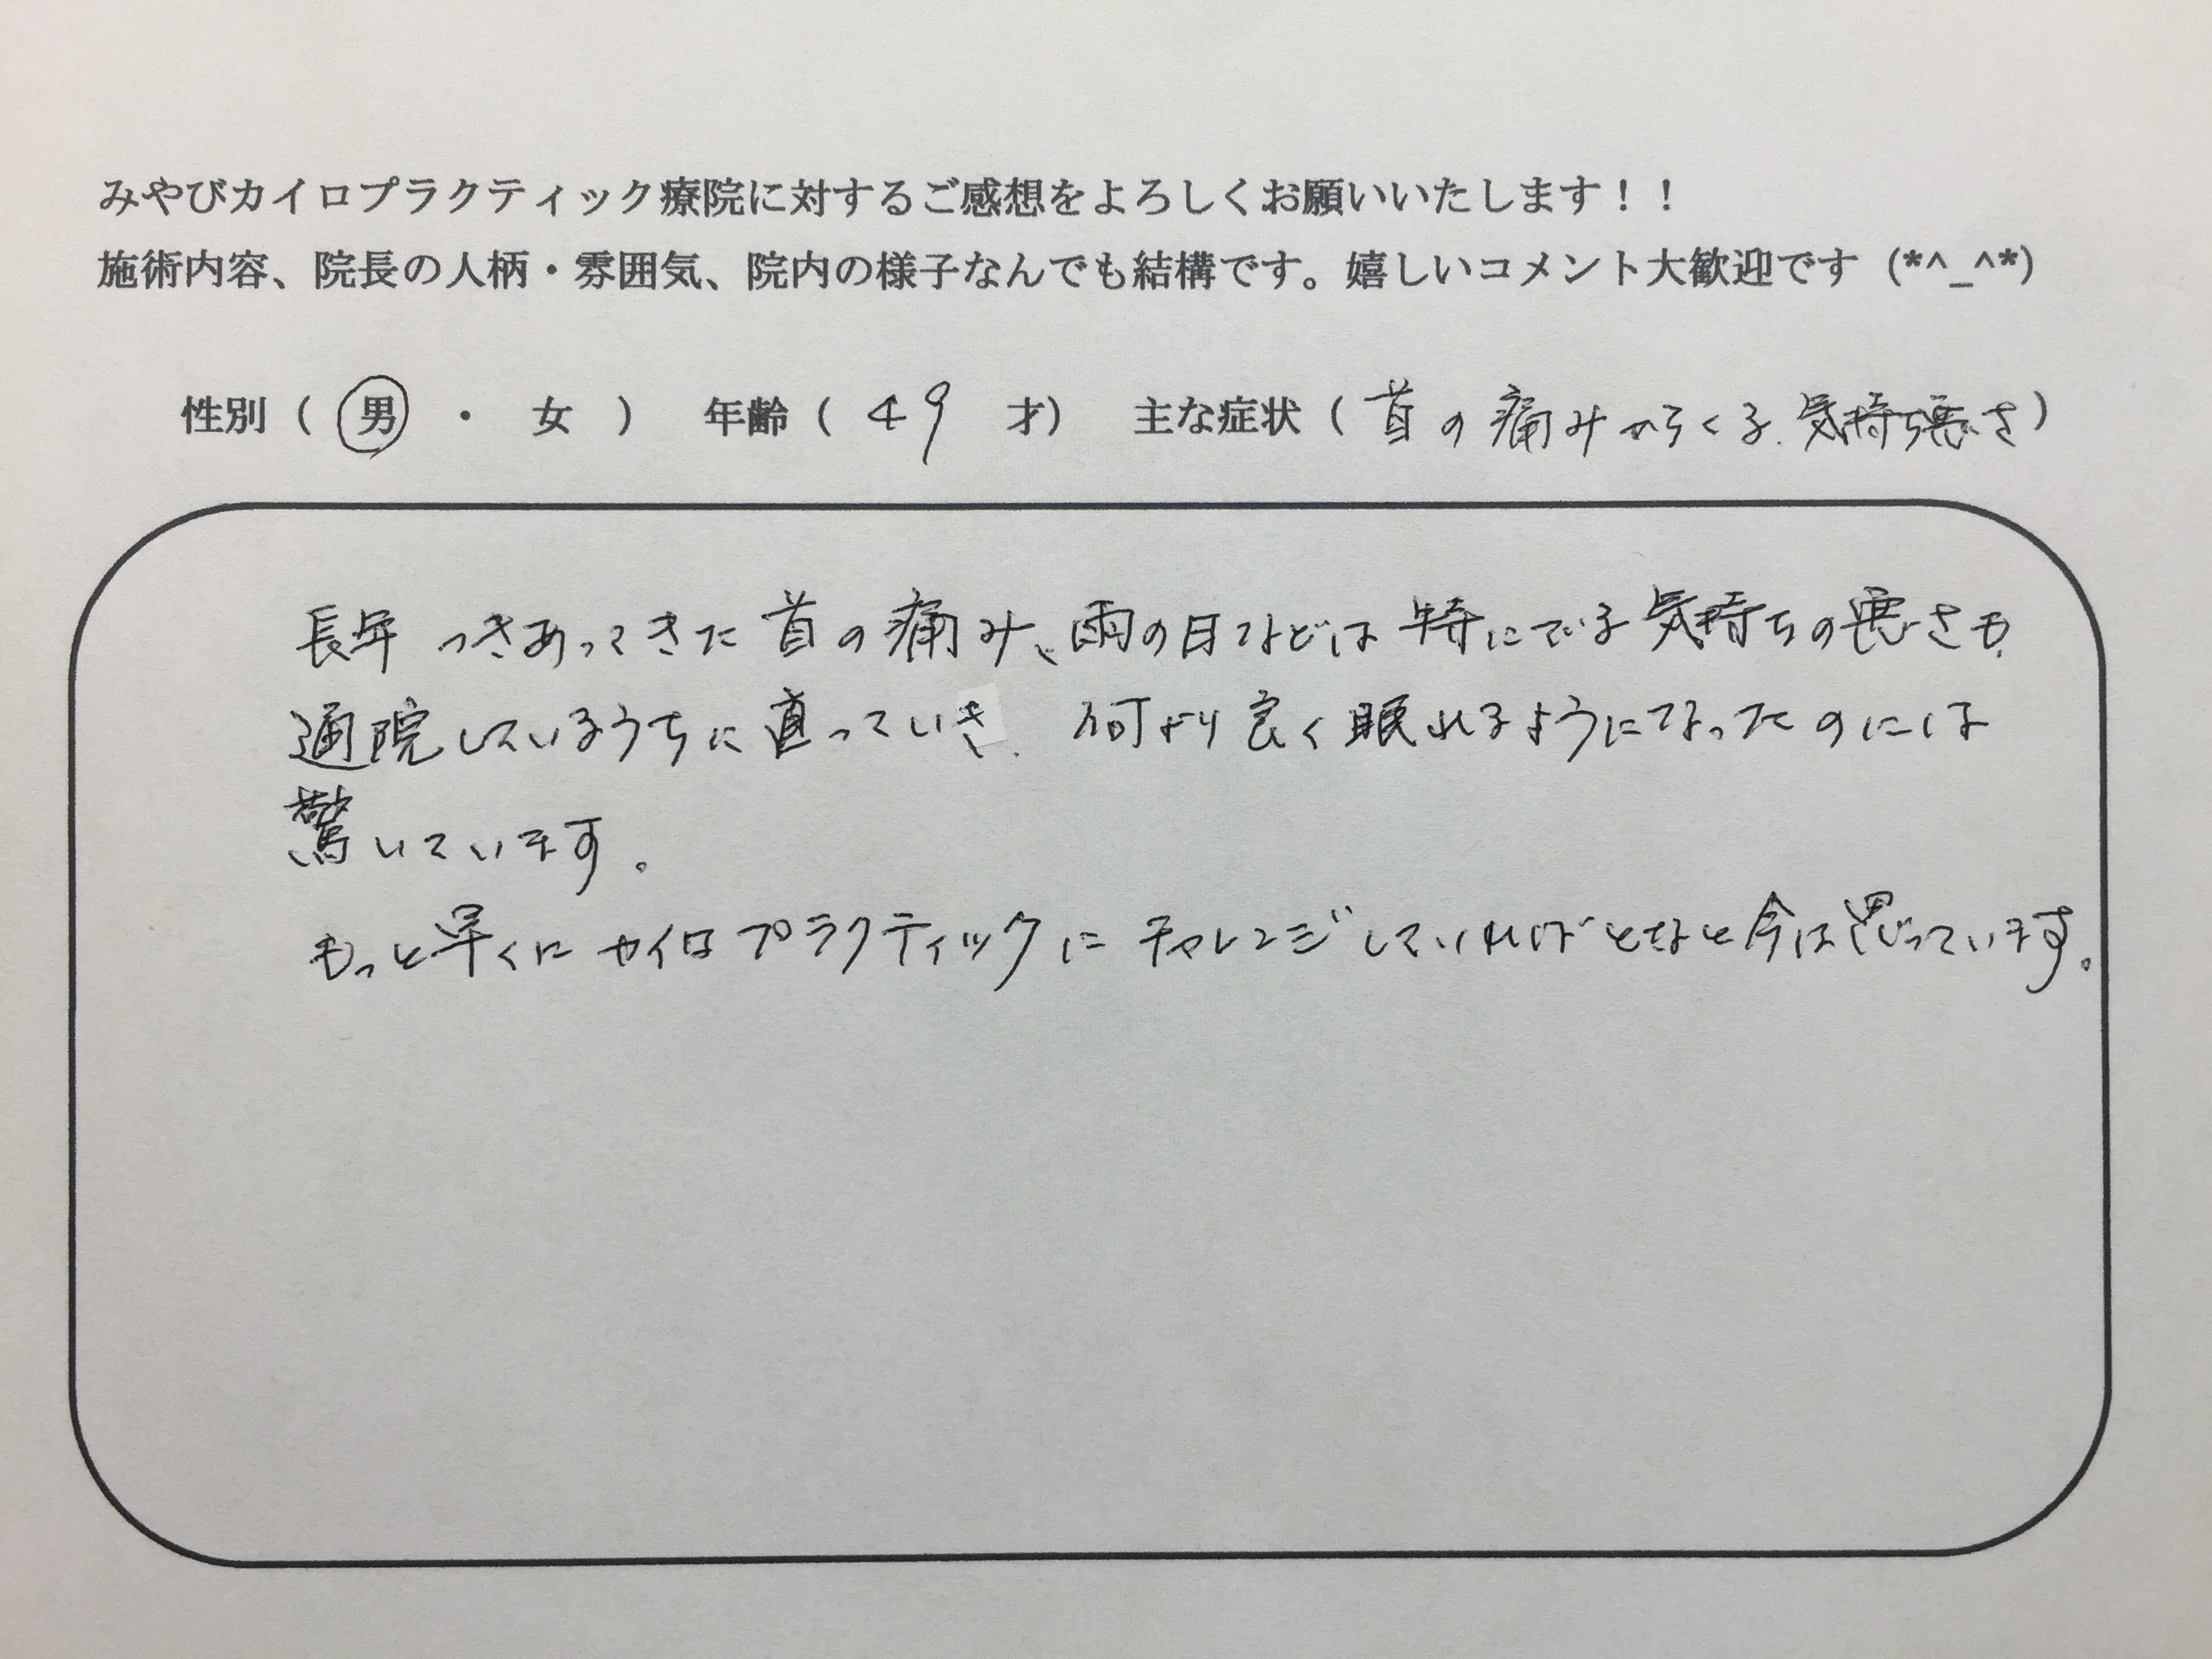 みやびカイロプラクティック療院に対するご感想をよろしくお願いいたします！！
施術内容、院長の人柄・雰囲気、院内の様子なんでも結構です。嬉しいコメント大歓迎です（*^_^*）
性別（ 男 ・ 女 ） 年齢（ 49 才） 主な症状（ 首の痛みからくる、気持ち悪さ）
長年つきあってきた首の痛み、雨の日などは特にでる気持ちの悪さも、
通院しているうちに直っていき、何より良く眠れるようになったのには
驚いています。
もっと早くにカイロプラクティックにチャレンジしていればとなと今は思っています。